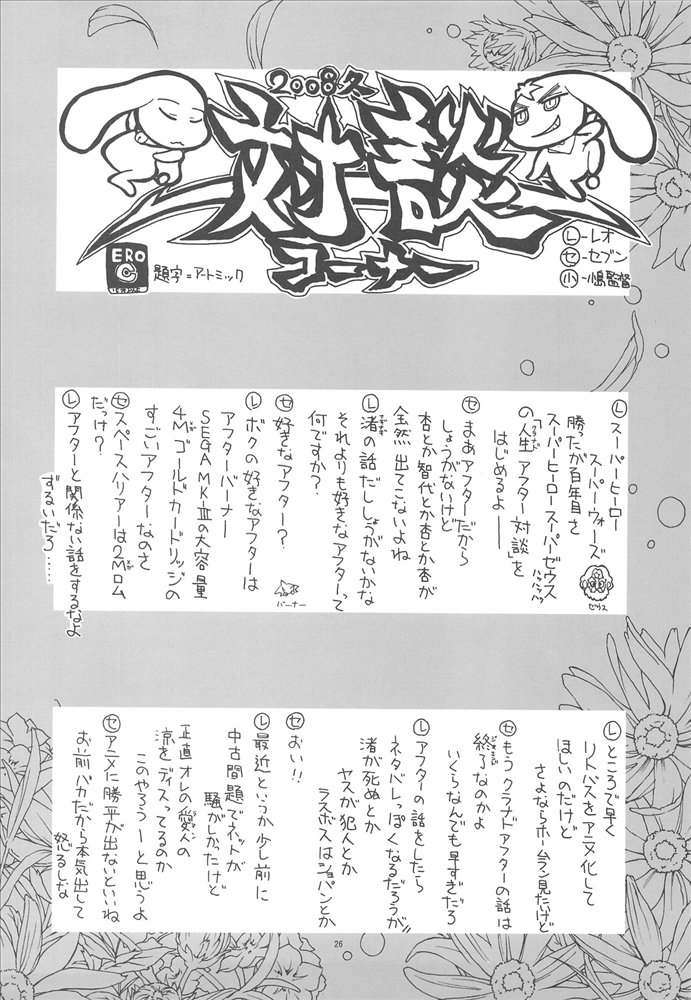 2008冬
対談
コーナー
ERO
C
題字=アートミック
Ⓛ-レオ
セ-セブン
小-小嶋監督
Ⓛスーパーヒーロー
スーパーウォーズ
勝ったが百年目さ
スーパーヒーロースーパーゼウス
ハッハッハッ
ゼウス
の人生アフター対談」を
クラナド
はじめるよ――
セまあアフターだから
しょうがないけど
杏とか智代とか杏とか杏が
全然出てこないよね
Ⓛ渚の話だししょうがないかな
それよりも好きなアフターって
何ですか?
セ好きなアフター?
バーナー
Ⓛボクの好きなアフターは
アフターバーナー
SEGAMKⅢの大容量
4Mゴールドカードリッジの
すごいアフターなのさ
セスペースハリアーは2Mロム
だっけ?
Ⓛアフターと関係ない話をするなよ
ずるいだろ……
Ⓛところで早く
リトバスをアニメ化して
ほしいのだけど
さよならホームラン見たいけど
セもうクラナドアフターの話は
終了なのかよ
いくらなんでも早すぎだろ
Ⓛアフターの話をしたら
ネタバレっぽくなるだろうが!!
渚が死ぬとか
ヤスが犯人とか
ラスボスはショパンとか
セおい!!
Ⓛ最近というか少し前に
中古問題でネットが
騒がしかたけど
正直オレの愛人の
涼をディスってるのか
このやろうーと思うよ
セアニメに勝平が出ないといいね
お前バカだから本気出して
怒るしな
26